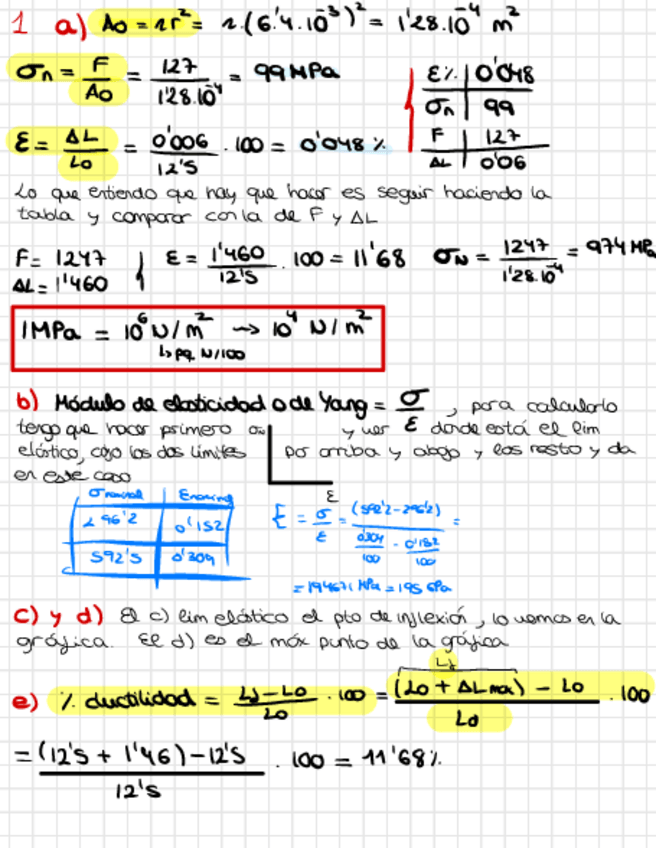 1 a) Ao = πr² = π·(6'4·10⁻³)² = 1'28·10⁻⁴ m²
σn = F/Ao = 127/1'28·10⁻⁴ = 99 MPa
ε% | 0'048
σn | 99
F | 127
ΔL | 0'06
ε = ΔL/Lo = 0'006/12'5 · 100 = 0'048 %
Lo que entiendo que hay que hacer es seguir haciendo la
tabla y comparar con la de F y ΔL
F = 1247
ΔL = 1'460
ε = 1'460/12'5 · 100 = 11'68
σN = 1247/1'28·10⁻⁴ = 974 MPa
1MPa = 10⁶ N/m² → 10⁴ N/m²
↳ pq. N/100
b) Módulo de elasticidad o de Yang = σ/ε , para calcularlo
tengo que hacer primero σ y ver donde está el lim
elástico, cojo los dos límites por arriba y abajo y los resto y da
en este caso
ε
σ nominal | ε nominal
296'2 | 0'152
592'5 | 0'304
E = σ/ε = (592'2-296'2)/(0'304/100 - 0'152/100) =
= 194671 MPa = 195 GPa
c) y d) El c) lim elástico el pto de inflexión, lo vemos en la
gráfica. El d) es el máx punto de la gráfica
Lf
e) % ductilidad = Lf-Lo/Lo · 100 = (Lo + ΔL max) - Lo/Lo · 100
= (12'5 + 1'46) - 12'5/12'5 · 100 = 11'68%